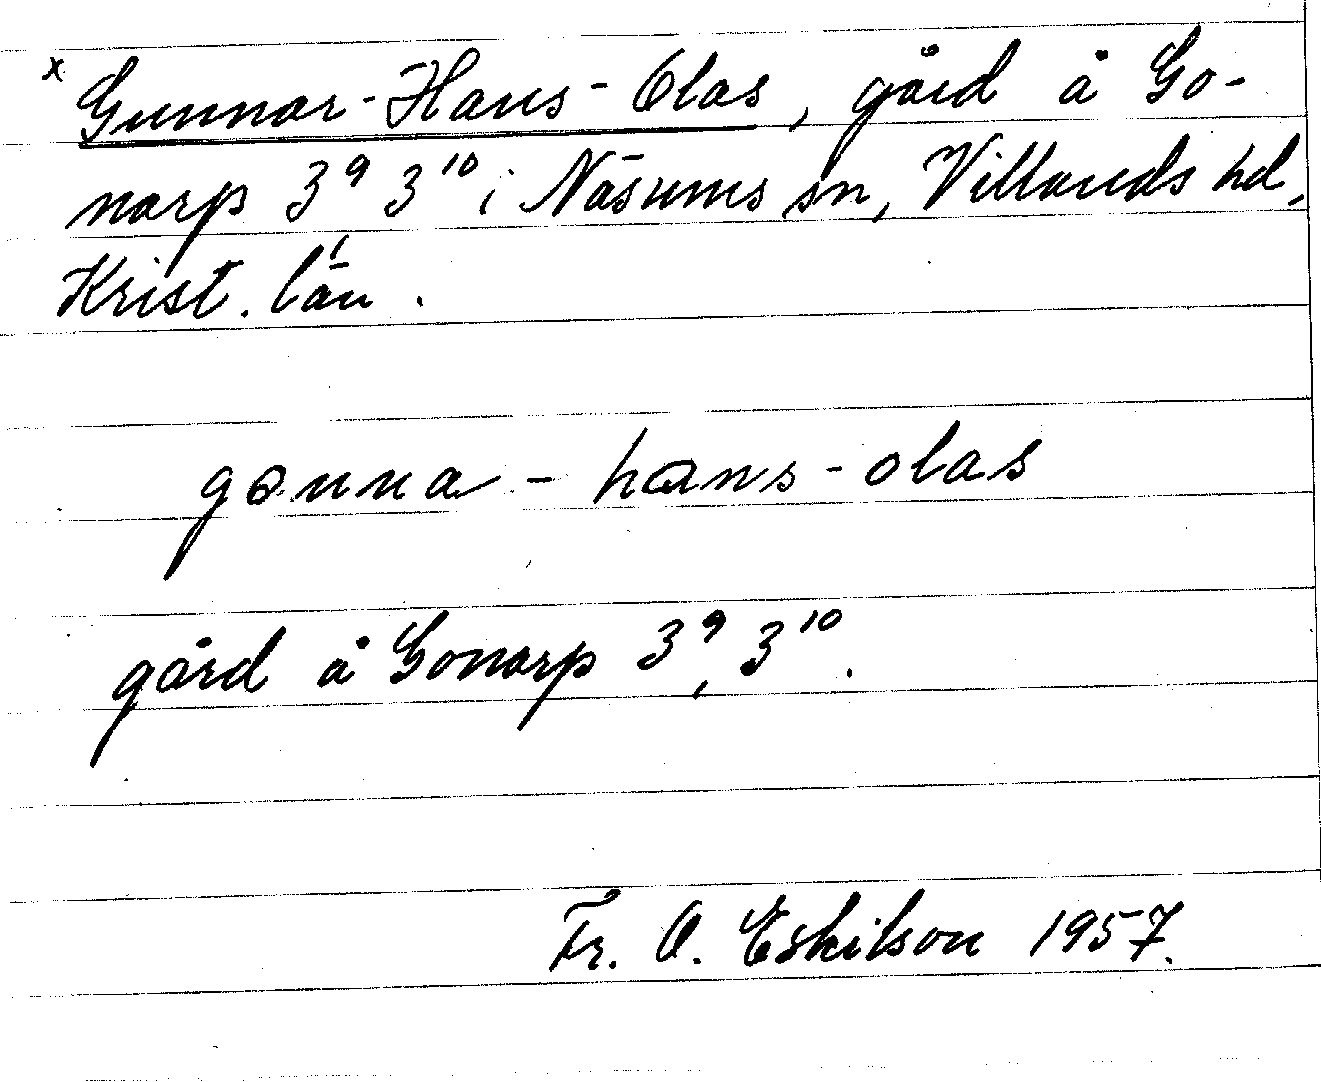 x Gunnar-Hans-Olas, gård å Go-
narp 3⁹ 3¹⁰ i Näsums sn, Villands hd,
Krist. län.
gɵnna - hans - olas
gård å Gonarp 3⁹, 3¹⁰.
Fr. O. Eskilson 1957.